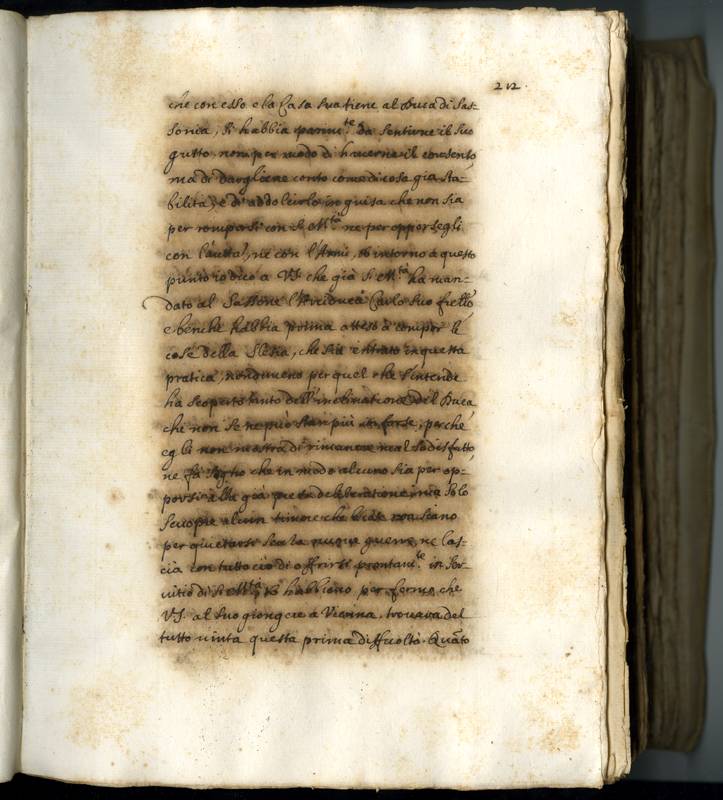 212.
che con esso e la Casa sua tiene al Duca di Sas-
sonia, si habbia parim.te da sentirne il suo
gusto non per modo di haverne il consento,
ma di dargliene conto come di cosa gia sta-
bilita, e di addolcirlo in guisa che non sia
per rompersi con S. M.tà ne per opporsegli
con l'autta, ne con l'Armi, et intorno à questo
punto io dico a VS. che già S. M.tà ha man-
dato al Sassone l'Arciduca Carlo suo frello
e benche habbia prima atteso à compor le
cose della Slesia, che sia entrato in questa
pratica, nondimeno per quel che s'intende
ha scoperto tanto dell'inclinatione del Duca
che non se ne può star più
egli non mostra di rimanere mal sodisfatto,
ne fà segno che in modo alcuno sia per op-
porsi alla già deliberatione, ma solo
scuopre alcun timore che non siano
per quietarsi senza nuove guerre, ne las-
cia con tutto ciò di offrirsi prontam.te in ser-
vitio di S. M.tà habbiano per fermo, che
VS. al suo giongere à Vienna, trovarà del
tutto vinta questa prima diffcoltà. Quato